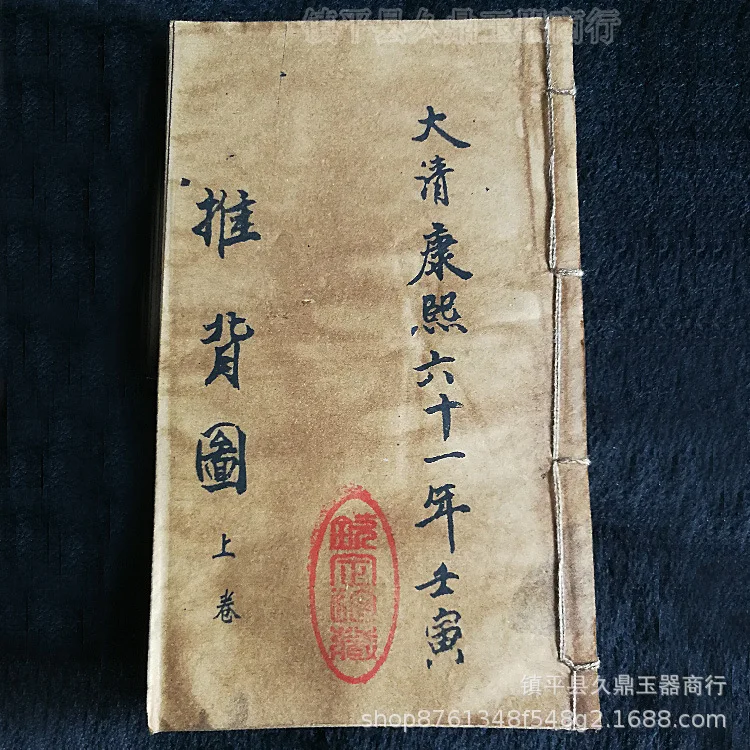 镇平县久鼎玉器商行
大清康熙六十一年壬寅
推背圖
上卷
镇平县久鼎玉器商行
shop8761348f548g2.1688.com